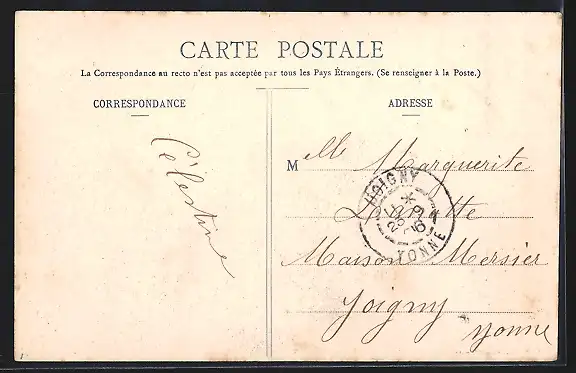 CARTE POSTALE
La Correspondance au recto n'est pas acceptée par tous les Pays Étrangers. (Se renseigner à la Poste.)
CORRESPONDANCE
Célestine
ADRESSE
Melle Marguerite
Lamotte
Maison Mersier
Joigny
Yonne
JOIGNY
YONNE